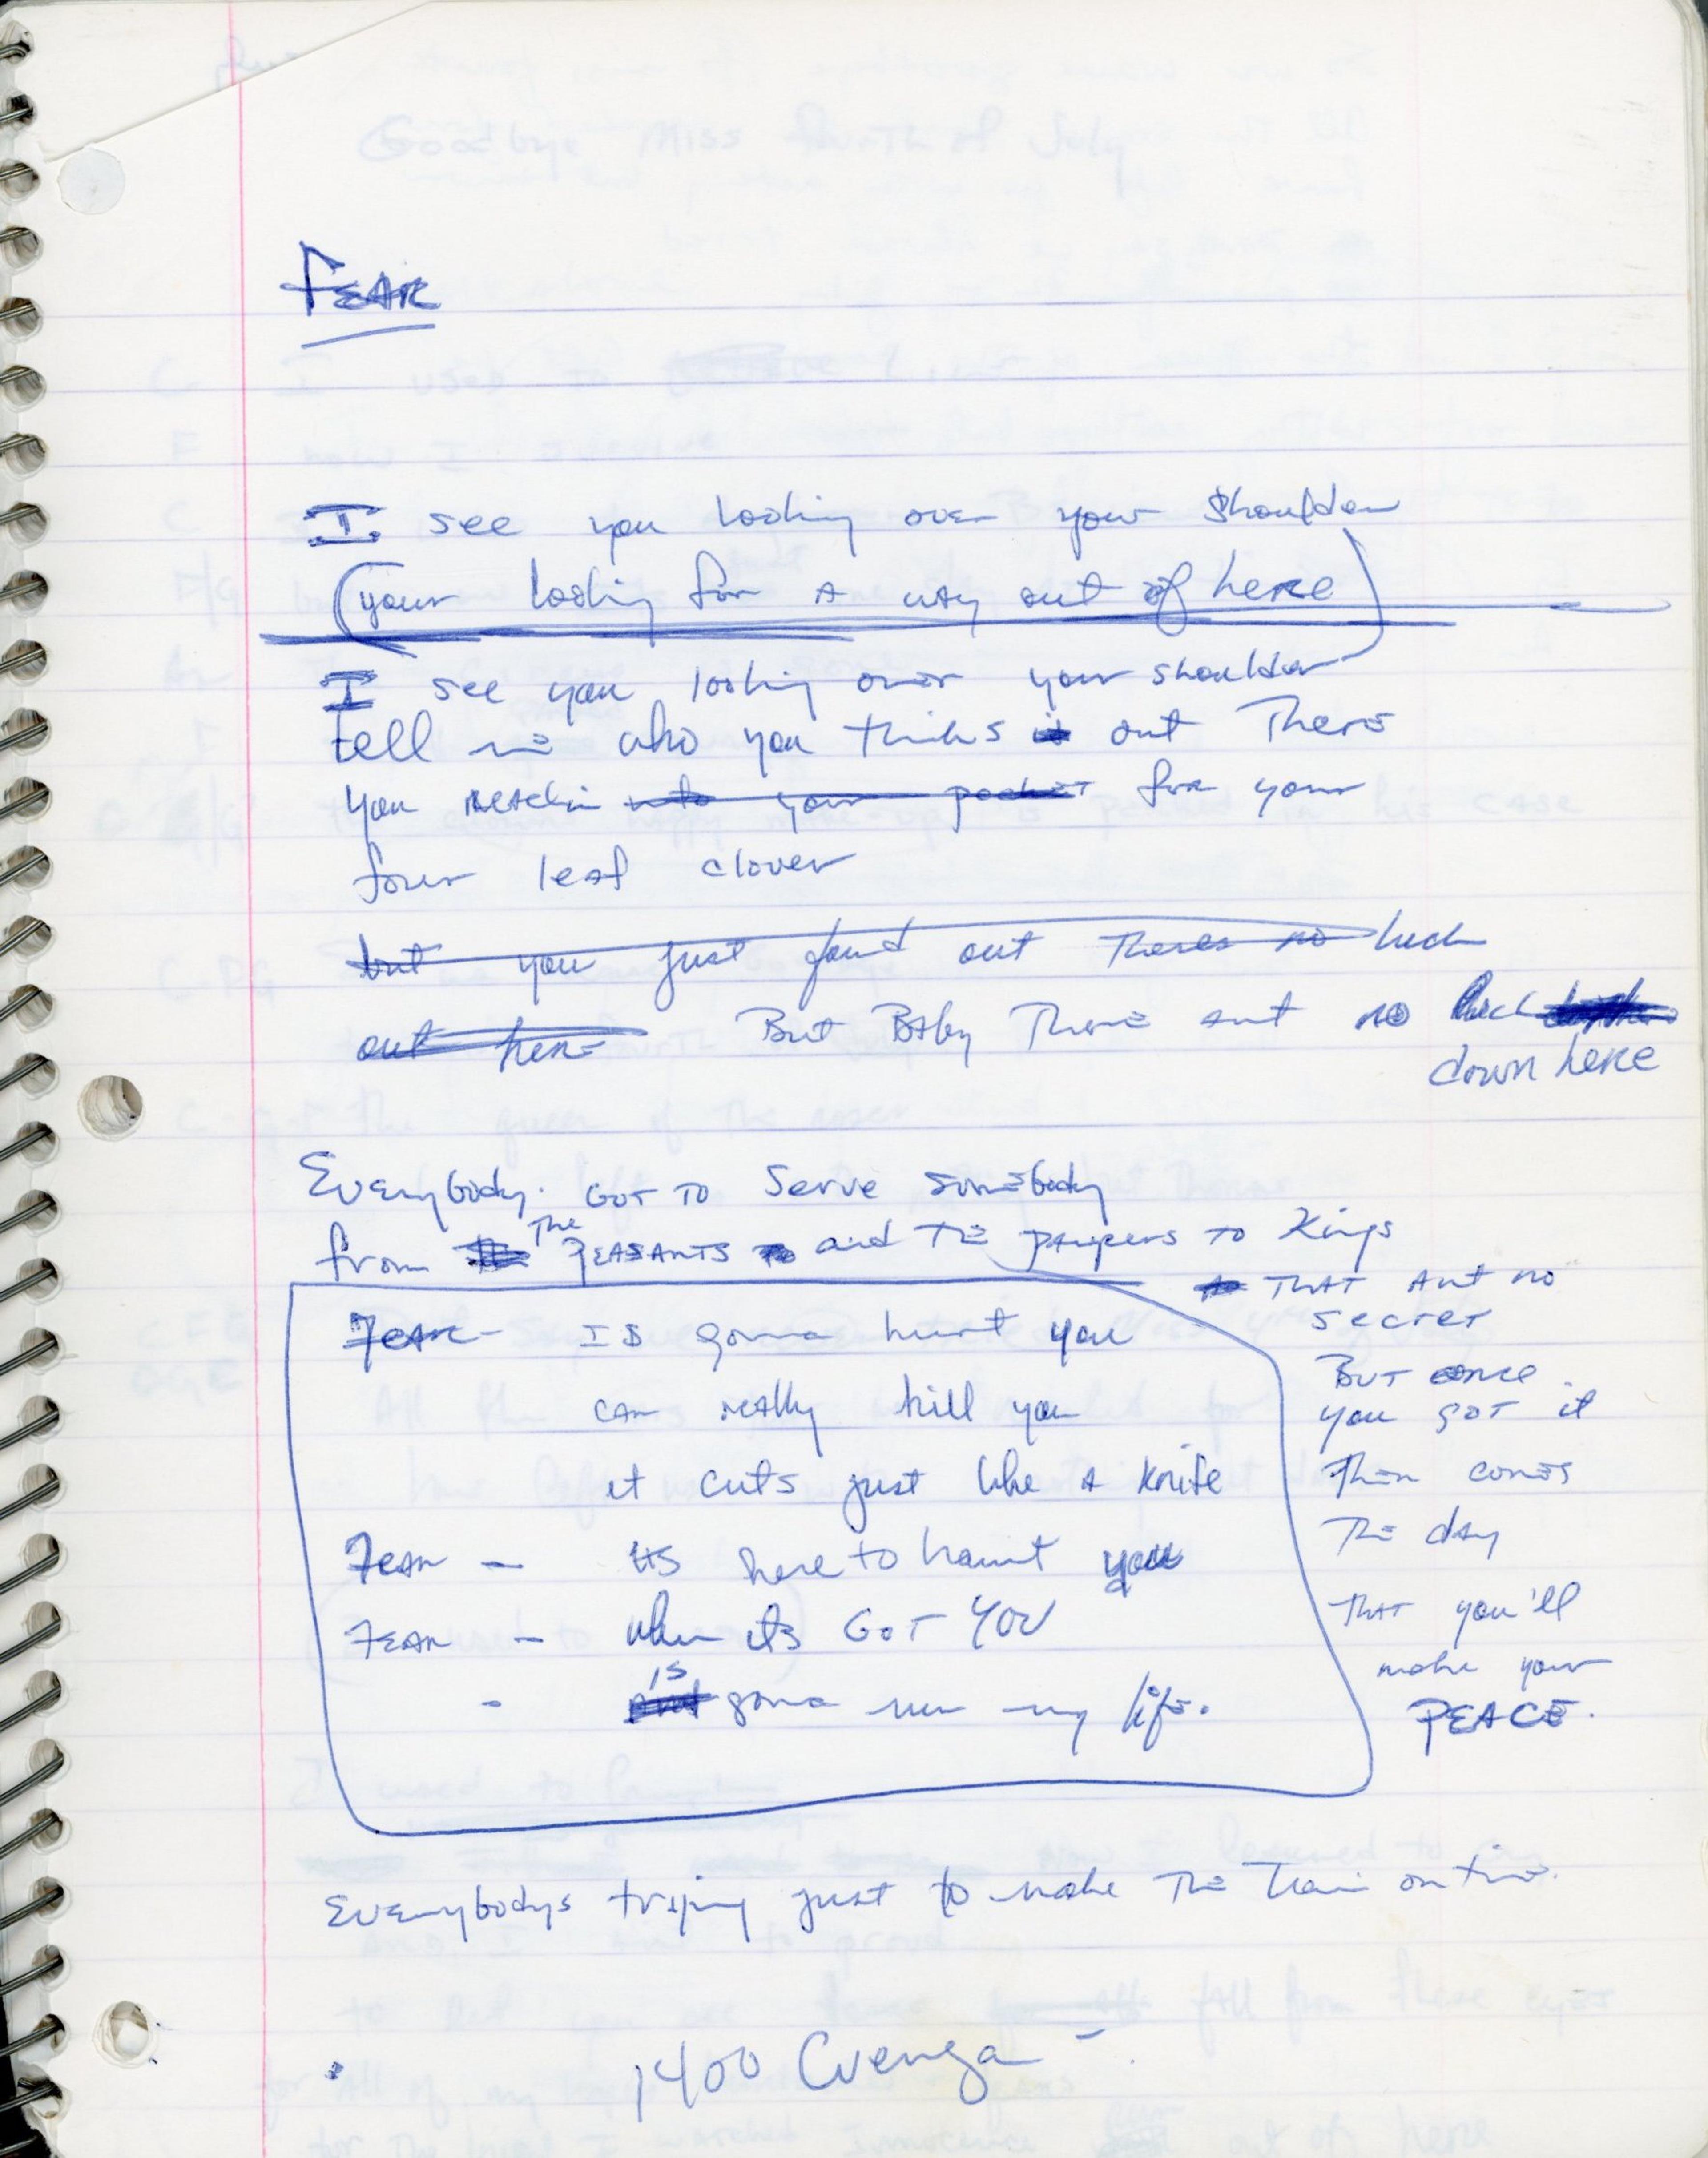 FEAR
I see you looking over your shoulder
(your looking for a way out of here)
I see you looking over your shoulder
tell me who you thinks is out There
you reachin into your pocket for your
four leaf clover
but you just found out Theres no luck
out here But Baby There ant no luck
down here
Everybody. GOT TO Serve Somebody
from The PEASANTS and THE paupers TO Kings
THAT ANT NO
secret
BUT once
you GOT it
Then comes
THE day
THAT you'll
make your
PEACE.
Fear - IS gonna hurt you
can really kill you
it cuts just like A knife
Fear - its here to haunt you
FEAR - when its GOT YOU
- is gona run my life.
Everybodys trying just to make THE Train on time.
1400 Cuenga
Goodbye Miss Fourth of July